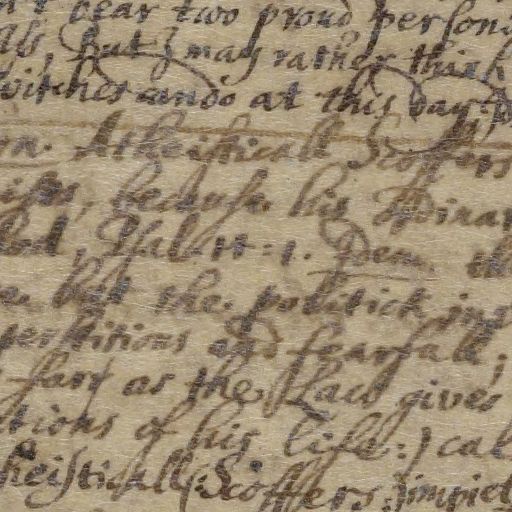 bear two proud persons
But I may rather think
Witches and at this day
Atheisticall Scoffers
because his
Psal: 14: 1. Yea the
but the politick in
perstitions and fearfull,
farr as the Law gives
ctions of his life: I cal
heisticall Scoffers: impiet